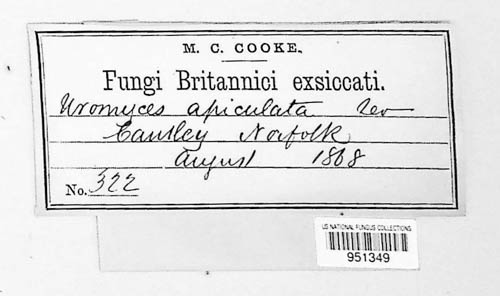 M. C. COOKE.
Fungi Britannici exsiccati.
Uromyces apiculata Lev
Cantley Norfolk
August 1868
No. 322
US NATIONAL FUNGUS COLLECTIONS
951349